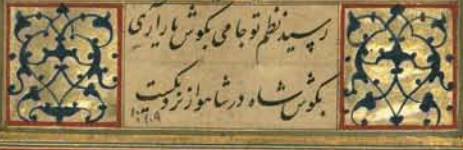 رسید نظم تو جامی بگوش یار آری
بگوش شاه در شاهوار نزدیکست